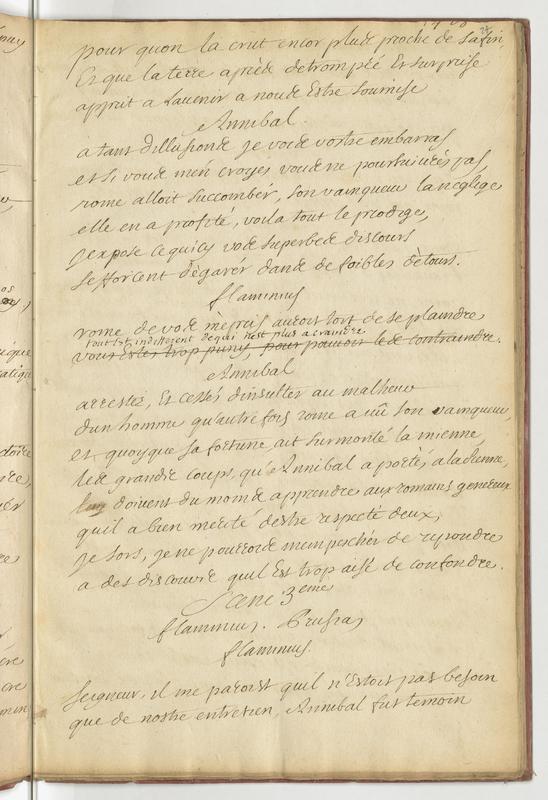 pour quon la crut encor plus proche de sa fin
Et que la terre aprés detrompée Et surprise
apprit a l'avenir a nous Estre soumise
Annibal.
a tant d'illusions je vois vostre embarras
et si vous m'en croyés vous ne poursuivrés pas,
rome alloit succomber, son vainqueur la neglige
elle en a profité, voila tout le prodige,
j'expose ce qu'icy vos superbes discours
sefforcent d'egarér dans de foibles détours.
flaminius
rome de vos mépris auroit tort de se plaindre
tout est indifferent de qui n'est plus a craindre
vous Estes trop puny, pour pouvoir les contraindre.
Annibal
arrestés, Et cessés d'insulter au malheur
dun homme qu'autre fois rome a vû son vainqueur,
et quoyque sa fortune, ait surmonté la mienne,
les grands coups, qu'Annibal a portés, a la sienne,
doivent du moins apprendre aux romains genereux
qu'il a bien merité destre respecté deux,
je sors, je ne pourrois m'empescher de repondre
a des discours quil Est trop aisé de confondre.
Scene 3eme
flaminius. Prusias,
flaminius.
seigneur, il me paroist quil n'Estoit pas besoin
que de nostre entretien, Annibal fut temoin